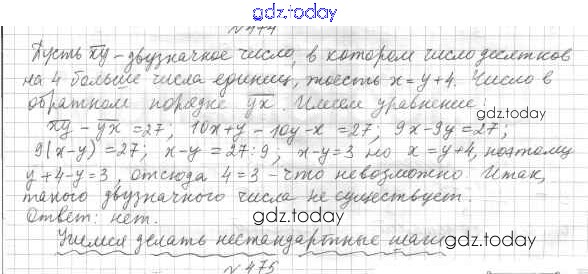 gdz.today
№474
Пусть xy - двузначное число, в котором число десятков
на 4 больше числа единиц, тоесть x = y + 4. Число в
обратном порядке yx. Имеем уравнение:
gdz.today
xy - yx = 27; 10x + y - 10y - x = 27; 9x - 9y = 27;
9(x - y) = 27; x - y = 27 : 9, x - y = 3 но x = y + 4, поэтому
y + 4 - y = 3, отсюда 4 = 3 - что невозможно Итак,
такого двузначного числа не существует.
Ответ: нет.
gdz.today
Учимся делать нестандартные шаги
gdz.today
№475